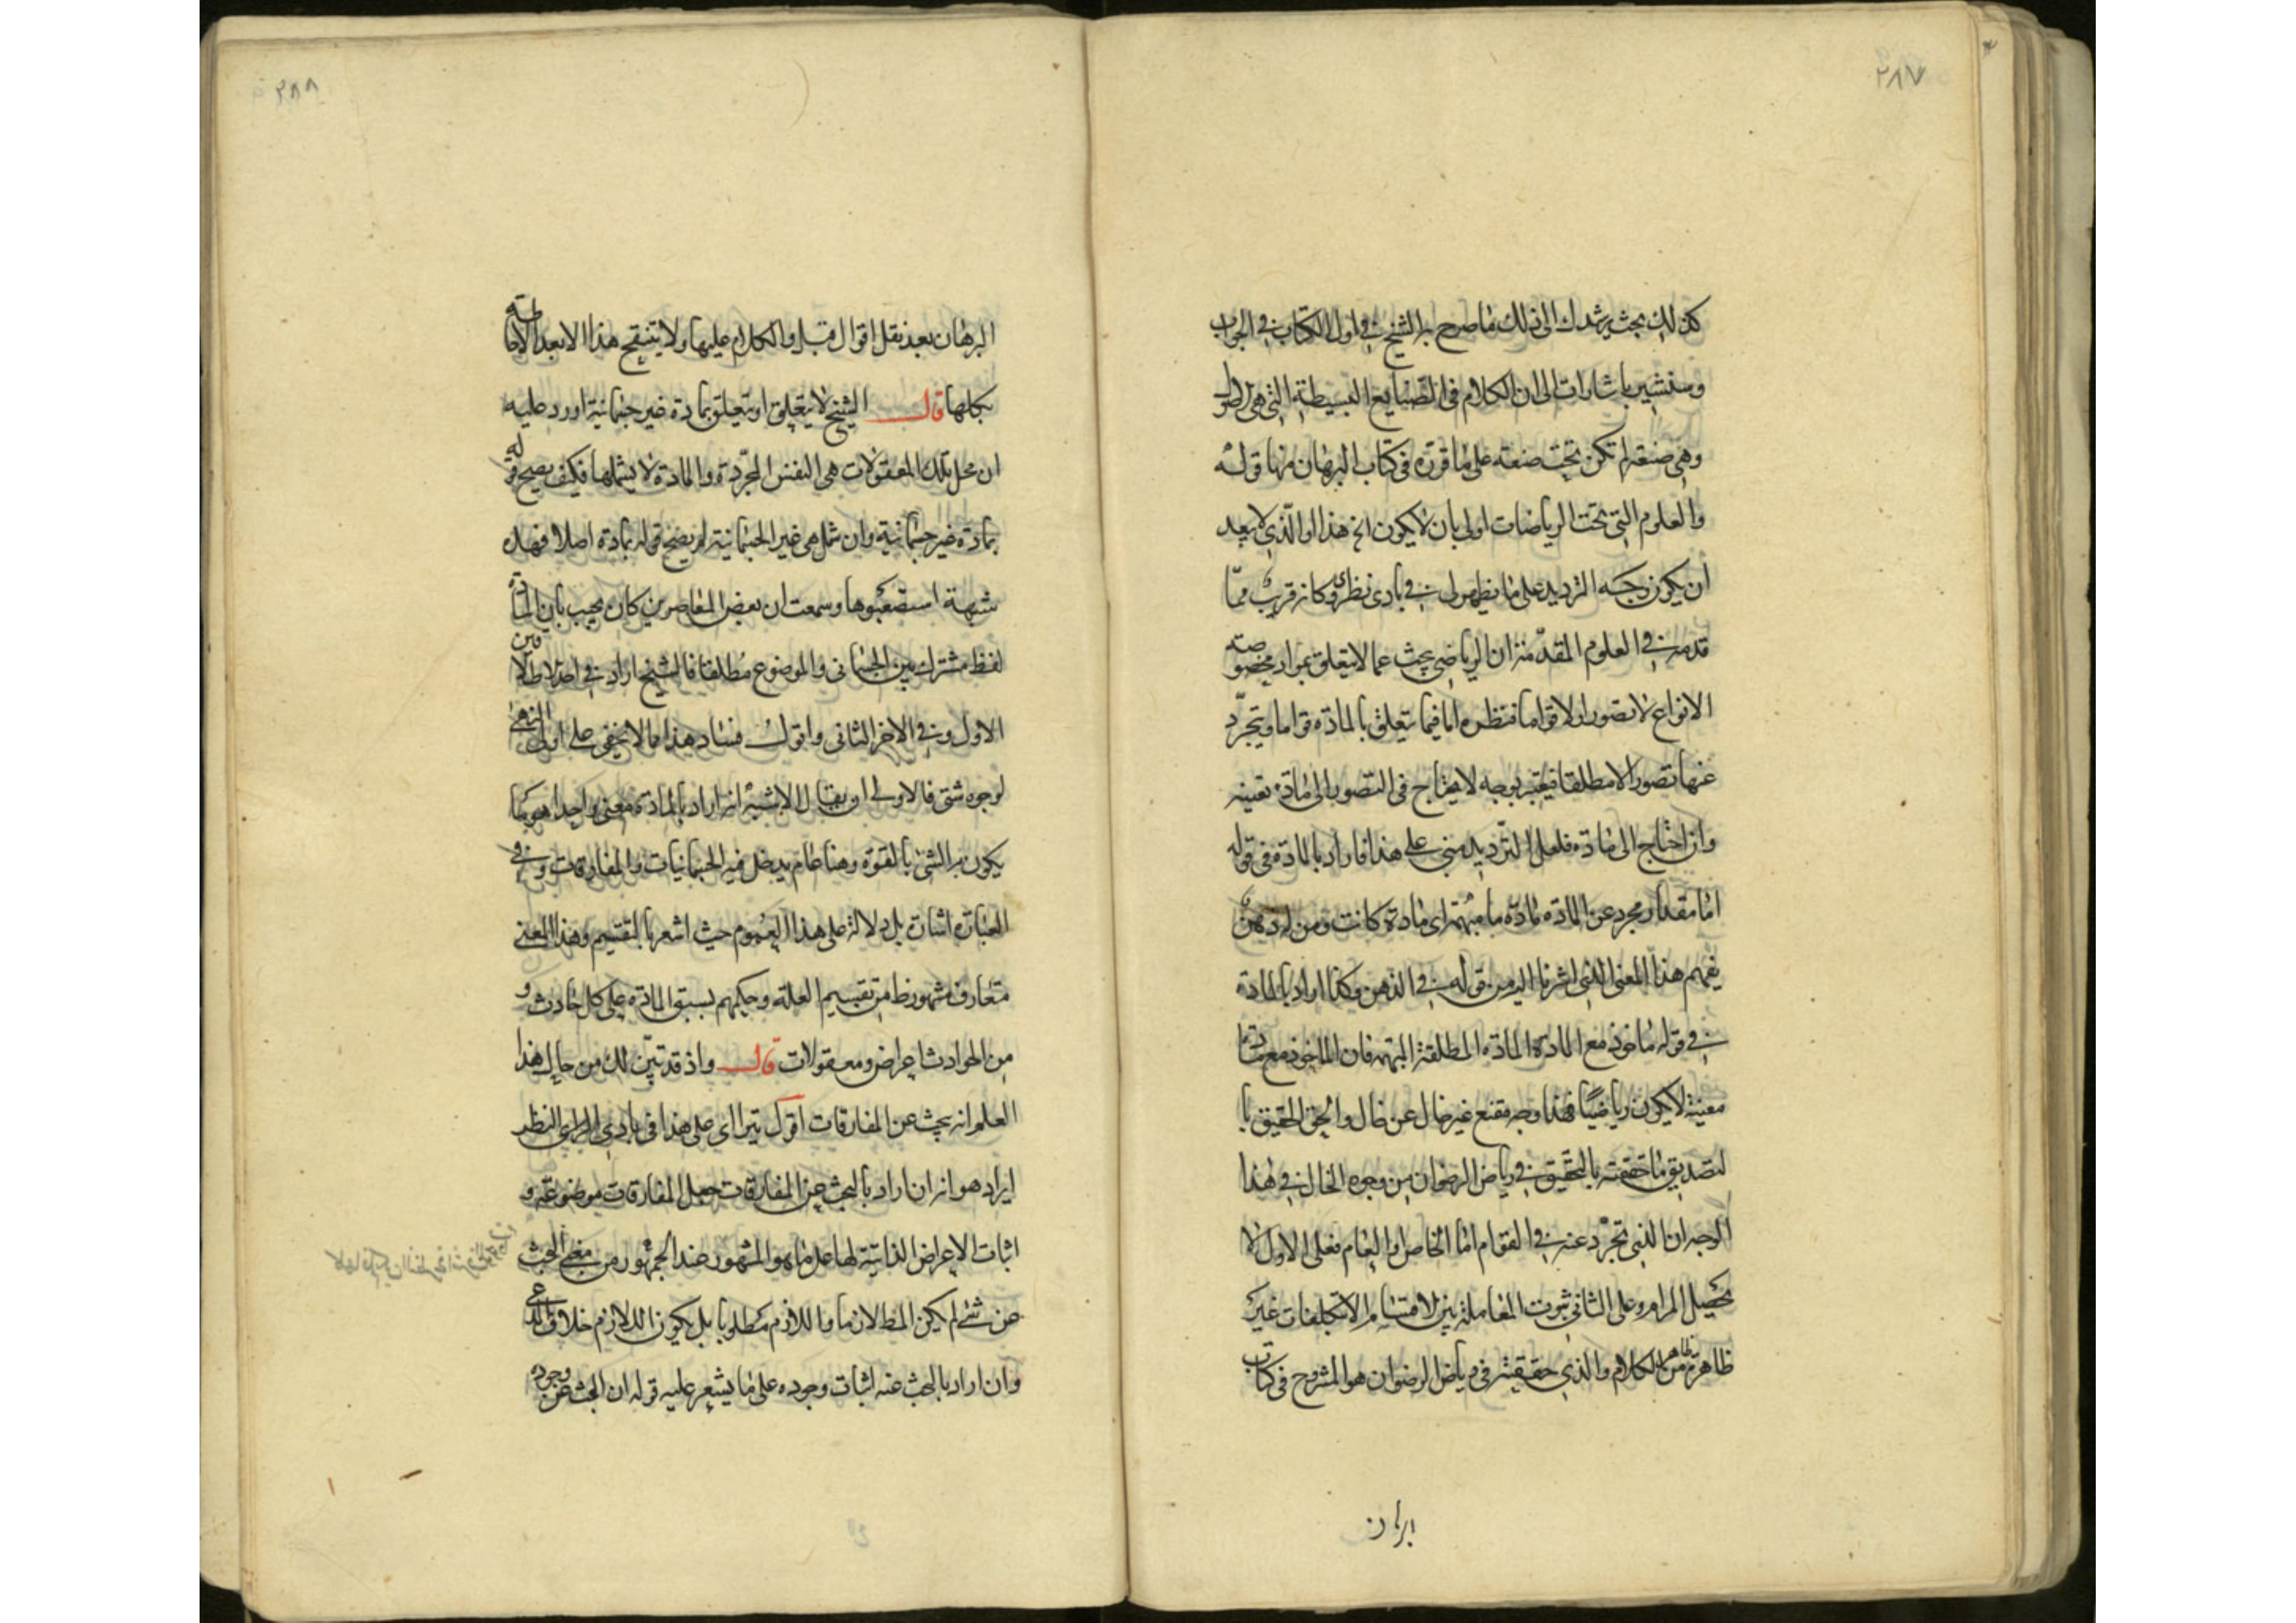 ٢٨٧
كذلك بحث يرشدك الى ذلك ما صرح به الشيخ في اول الكتاب في الجواب
وسنشير باشارات الى ان الكلام في الصنايع البسيطة التي هي
وهي صنعة لم تكن تحت صنعة على ما قرره في كتاب البرهان منها قوله
والعلوم التي تحت الرياضات اولى بان لا يكون الخ هذا والذي لا يبعد
أن يكون وجه الترديد على ما يظهر لي في بادى نظرى وكانه قريب ممّا
قدمته في العلوم المقدّمة ان الرياضي يبحث عما لا يتعلق بمواد مخصوصة
الانواع لا تصورا ولا قواما فنظره اما فيما يتعلق بالمادة قواما ويتجرّد
عنها تصورا لا مطلقا فيعتبر بوجه لا يحتاج في التصور الى مادة بعينه
وان احتاج الى مادة فلعل الترديد مبني على هذا فاراد بالمادة في قوله
امّا مقدار مجرد عن المادة مادة ما مبهمة اى مادة كانت ومن له دهن
يفهم هذا المعنى الذى اشرنا اليه من قوله في الذهن وكذا اراد بالمادة
في قوله مأخوذ مع المادة المادة المطلقة المبهمة فان المأخوذ مع مادة
معينة لا يكون رياضيًّا فهذا وجه مقنع غير خال عن خال والحق الحقيق با
لتصديق ما حققته بالتحقيق في رياض الرضوان من وجوه الخال في هذا
الوجه ان الذى تجرّد عنه في القوام امّا الخاص او العام فعلى الاول لا
يحصل المرام وعلى الثاني ثبوت المقاملة بين الاقسام الا بتكلفات غير
ظاهرة من ظاهر الكلام والذى حققته في رياض الرضوان هو المشروح في كتاب
البرهان
٢٨٨
البرهان بعد نقل اقوال قبله والكلام عليها ولا يتنقح هذا الا بعد الاحاطة
بكلها قال الشيخ لا يتعلق او يتعلق بمادة غير جسمانية اورد عليه
ان محل تلك المعقولات هي النفس المجرّدة والمادة لا يشملها فكيف يصح قوله
بمادة غير جسمانية وان شمل هي غير الجسمانية لم يصح قوله بمادة اصلا فهذه
شبهة استصعبوها وسمعت ان بعض المعاصرين كان يجيب بأن المادة
لفظ مشترك بين الجسماني والموضوع مطلقا فالشيخ اراد في احد الاطلاقين
الاول وفي الاخر الثاني واقول فساد هذا مما لا يخفى على اولى النهى
لوجوه شتى فالاولى ان يقال الاشبه انه اراد بالمادة معنى واحدا هو ما
يكون به الشئ بالقوة وهذا عام يدخل فيه الجسمانيات والمفارقات وفي
العبارة اشارة بل دلالة على هذا العموم حيث اشعر بالتقسيم وهذا المعنى
متعارف مشهور ظ من تقسيم العلة وحكمهم بسبق المادة على كل حادث و
من الحوادث اعراض ومعقولات قال واذ قد تبيّن لك من حال هذا
العلم انه يبحث عن المفارقات اقول يترااى على هذا في بادى الراى النظر
ايراد هو انه ان اراد بالبحث عن المفارقات جعل المفارقات موضوعة و
اثبات الاعراض الذاتية لها على ما هو المشهور عند الجمهور من معنى البحث
عن شئ لم يكن المط لازما واللازم مطلوبا بل يكون اللازم خلاف المدعى
وان اراد بالبحث عنه اثبات وجوده على ما يشعر عليه قوله ان البحث عن وجوده